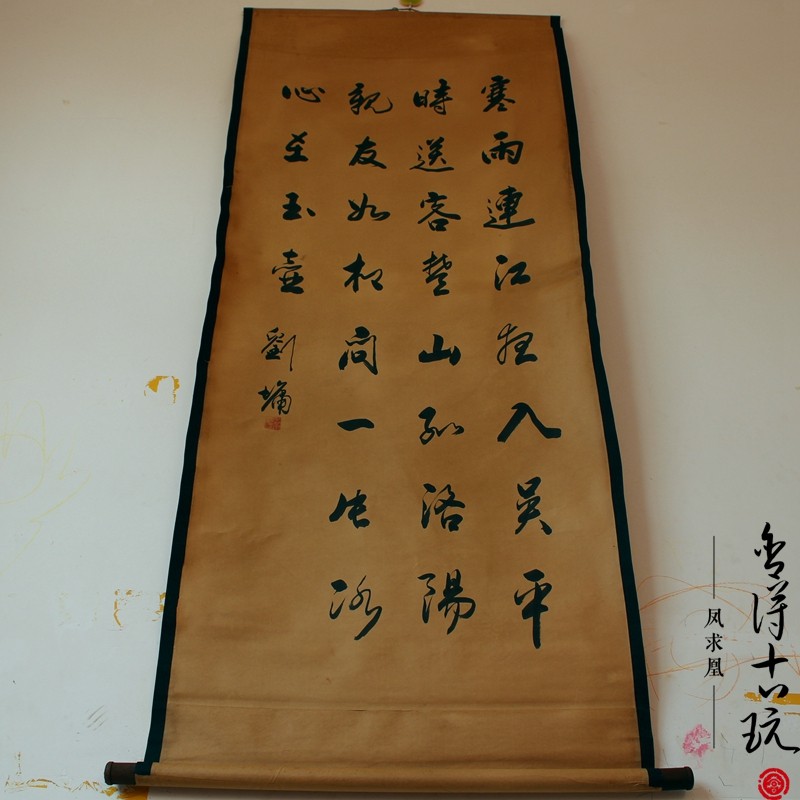 寒雨連江夜入吳平
時送客楚山孤洛陽
親友如相問一片冰
心在玉壺
劉墉
舍得十八玩
凤求凰